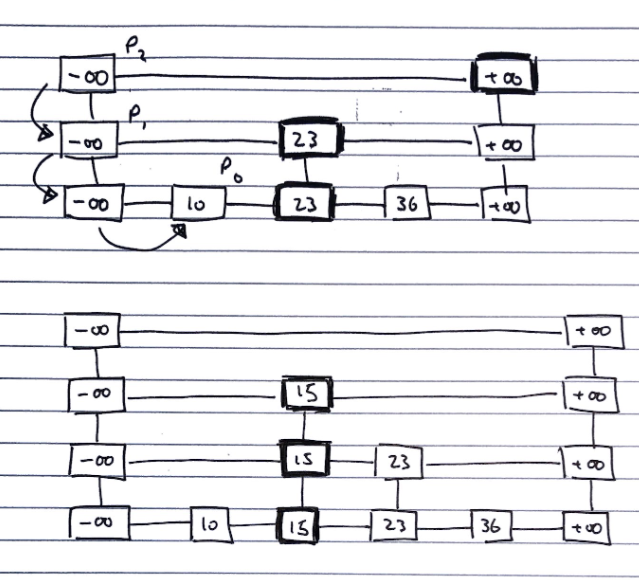 P2
-∞ +∞
P1
-∞ 23 +∞
P0
-∞ 10 23 36 +∞
-∞ +∞
-∞ 15 +∞
-∞ 15 23 +∞
-∞ 10 15 23 36 +∞